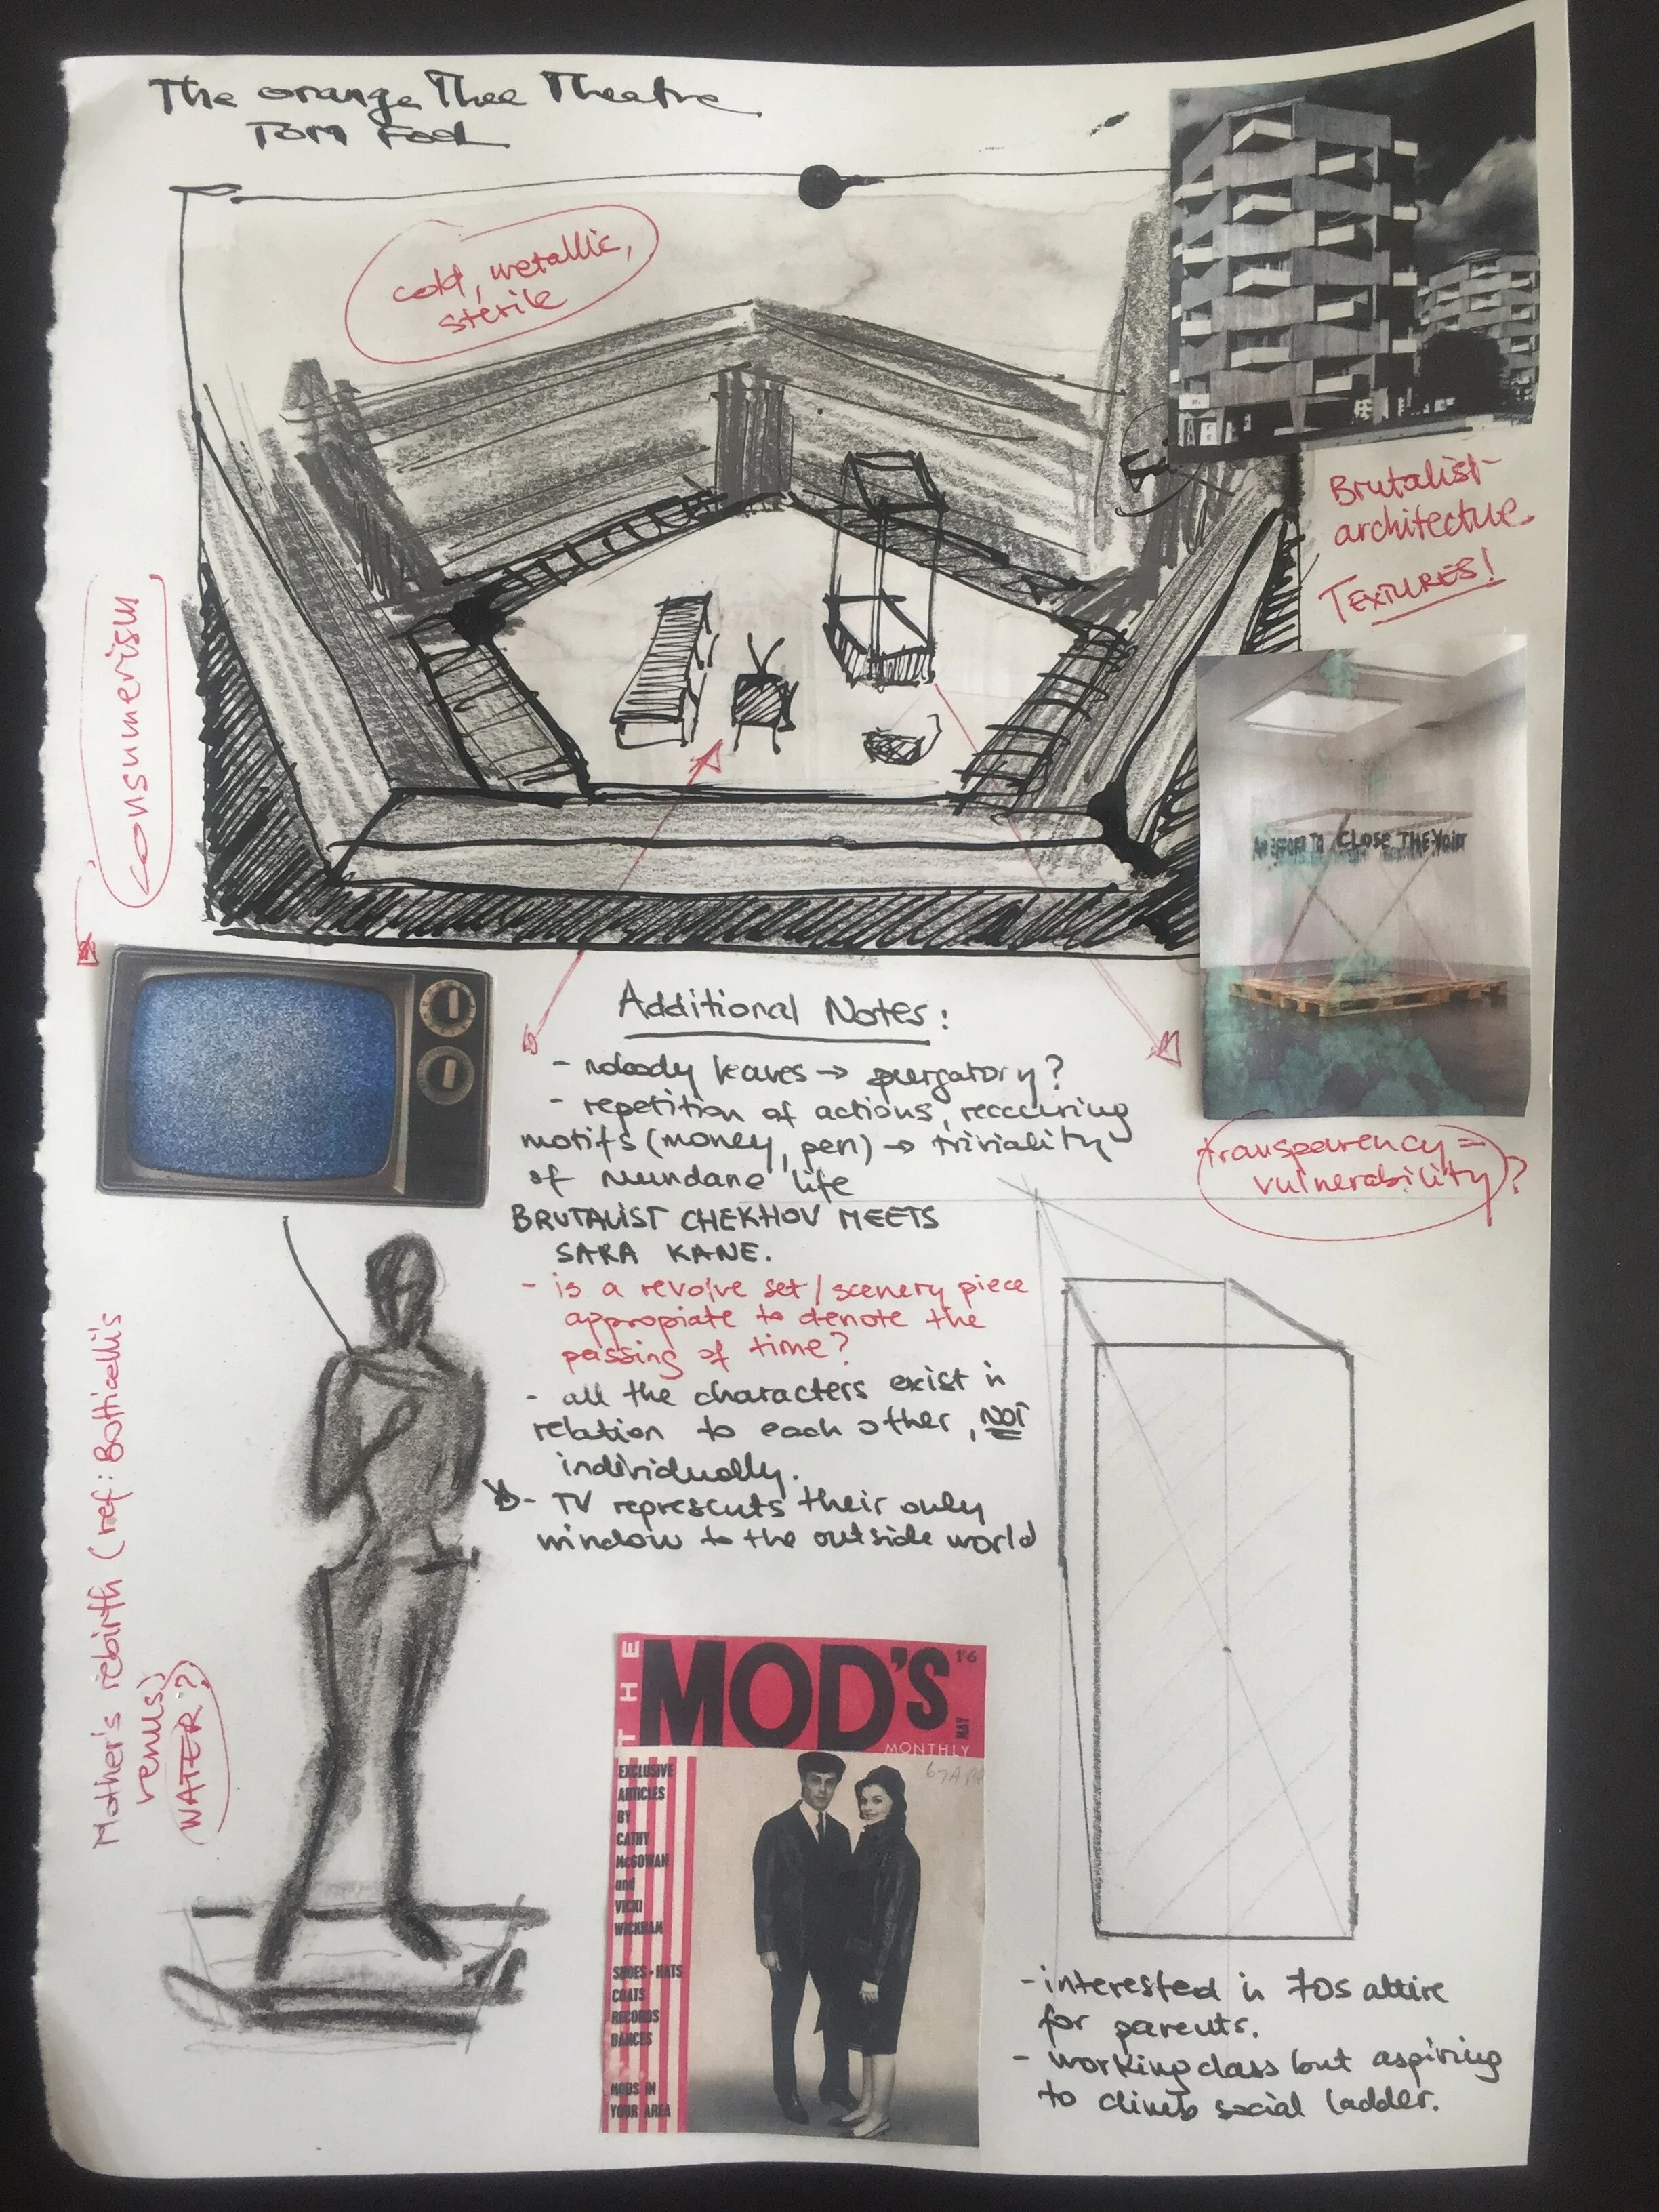 The orange Thee Theatre
TOM Fool
cold, metallic,
sterile
Brutalist
architecture
TEXTURES!
consumerism
AN EFFORT TO CLOSE THE VOID
transparency =
vulnerability?
Additional Notes:
- nobody leaves → purgatory?
- repetition of actions, reccuring
motifs (money, pen) → triviality
of mundane life
BRUTALIST CHEKHOV MEETS
SARA KANE.
- is a revolve set/scenery piece
appropiate to denote the
passing of time?
- all the characters exist in
relation to each other, NOT
individually.
- TV represents their only
window to the outside world
Mother's rebirth (ref: Botticelli's
venus)
WATER?
THE
MOD'S
1'6
MAY
MONTHLY
EXCLUSIVE
ARTICLES
BY
CATHY
McGOWAN
and
VICKI
WICKHAM
SHOES-HATS
COATS
RECORDS
DANCES
MODS IN
YOUR AREA
- interested in 70s attire
for parents.
- working class but aspiring
to climb social ladder.